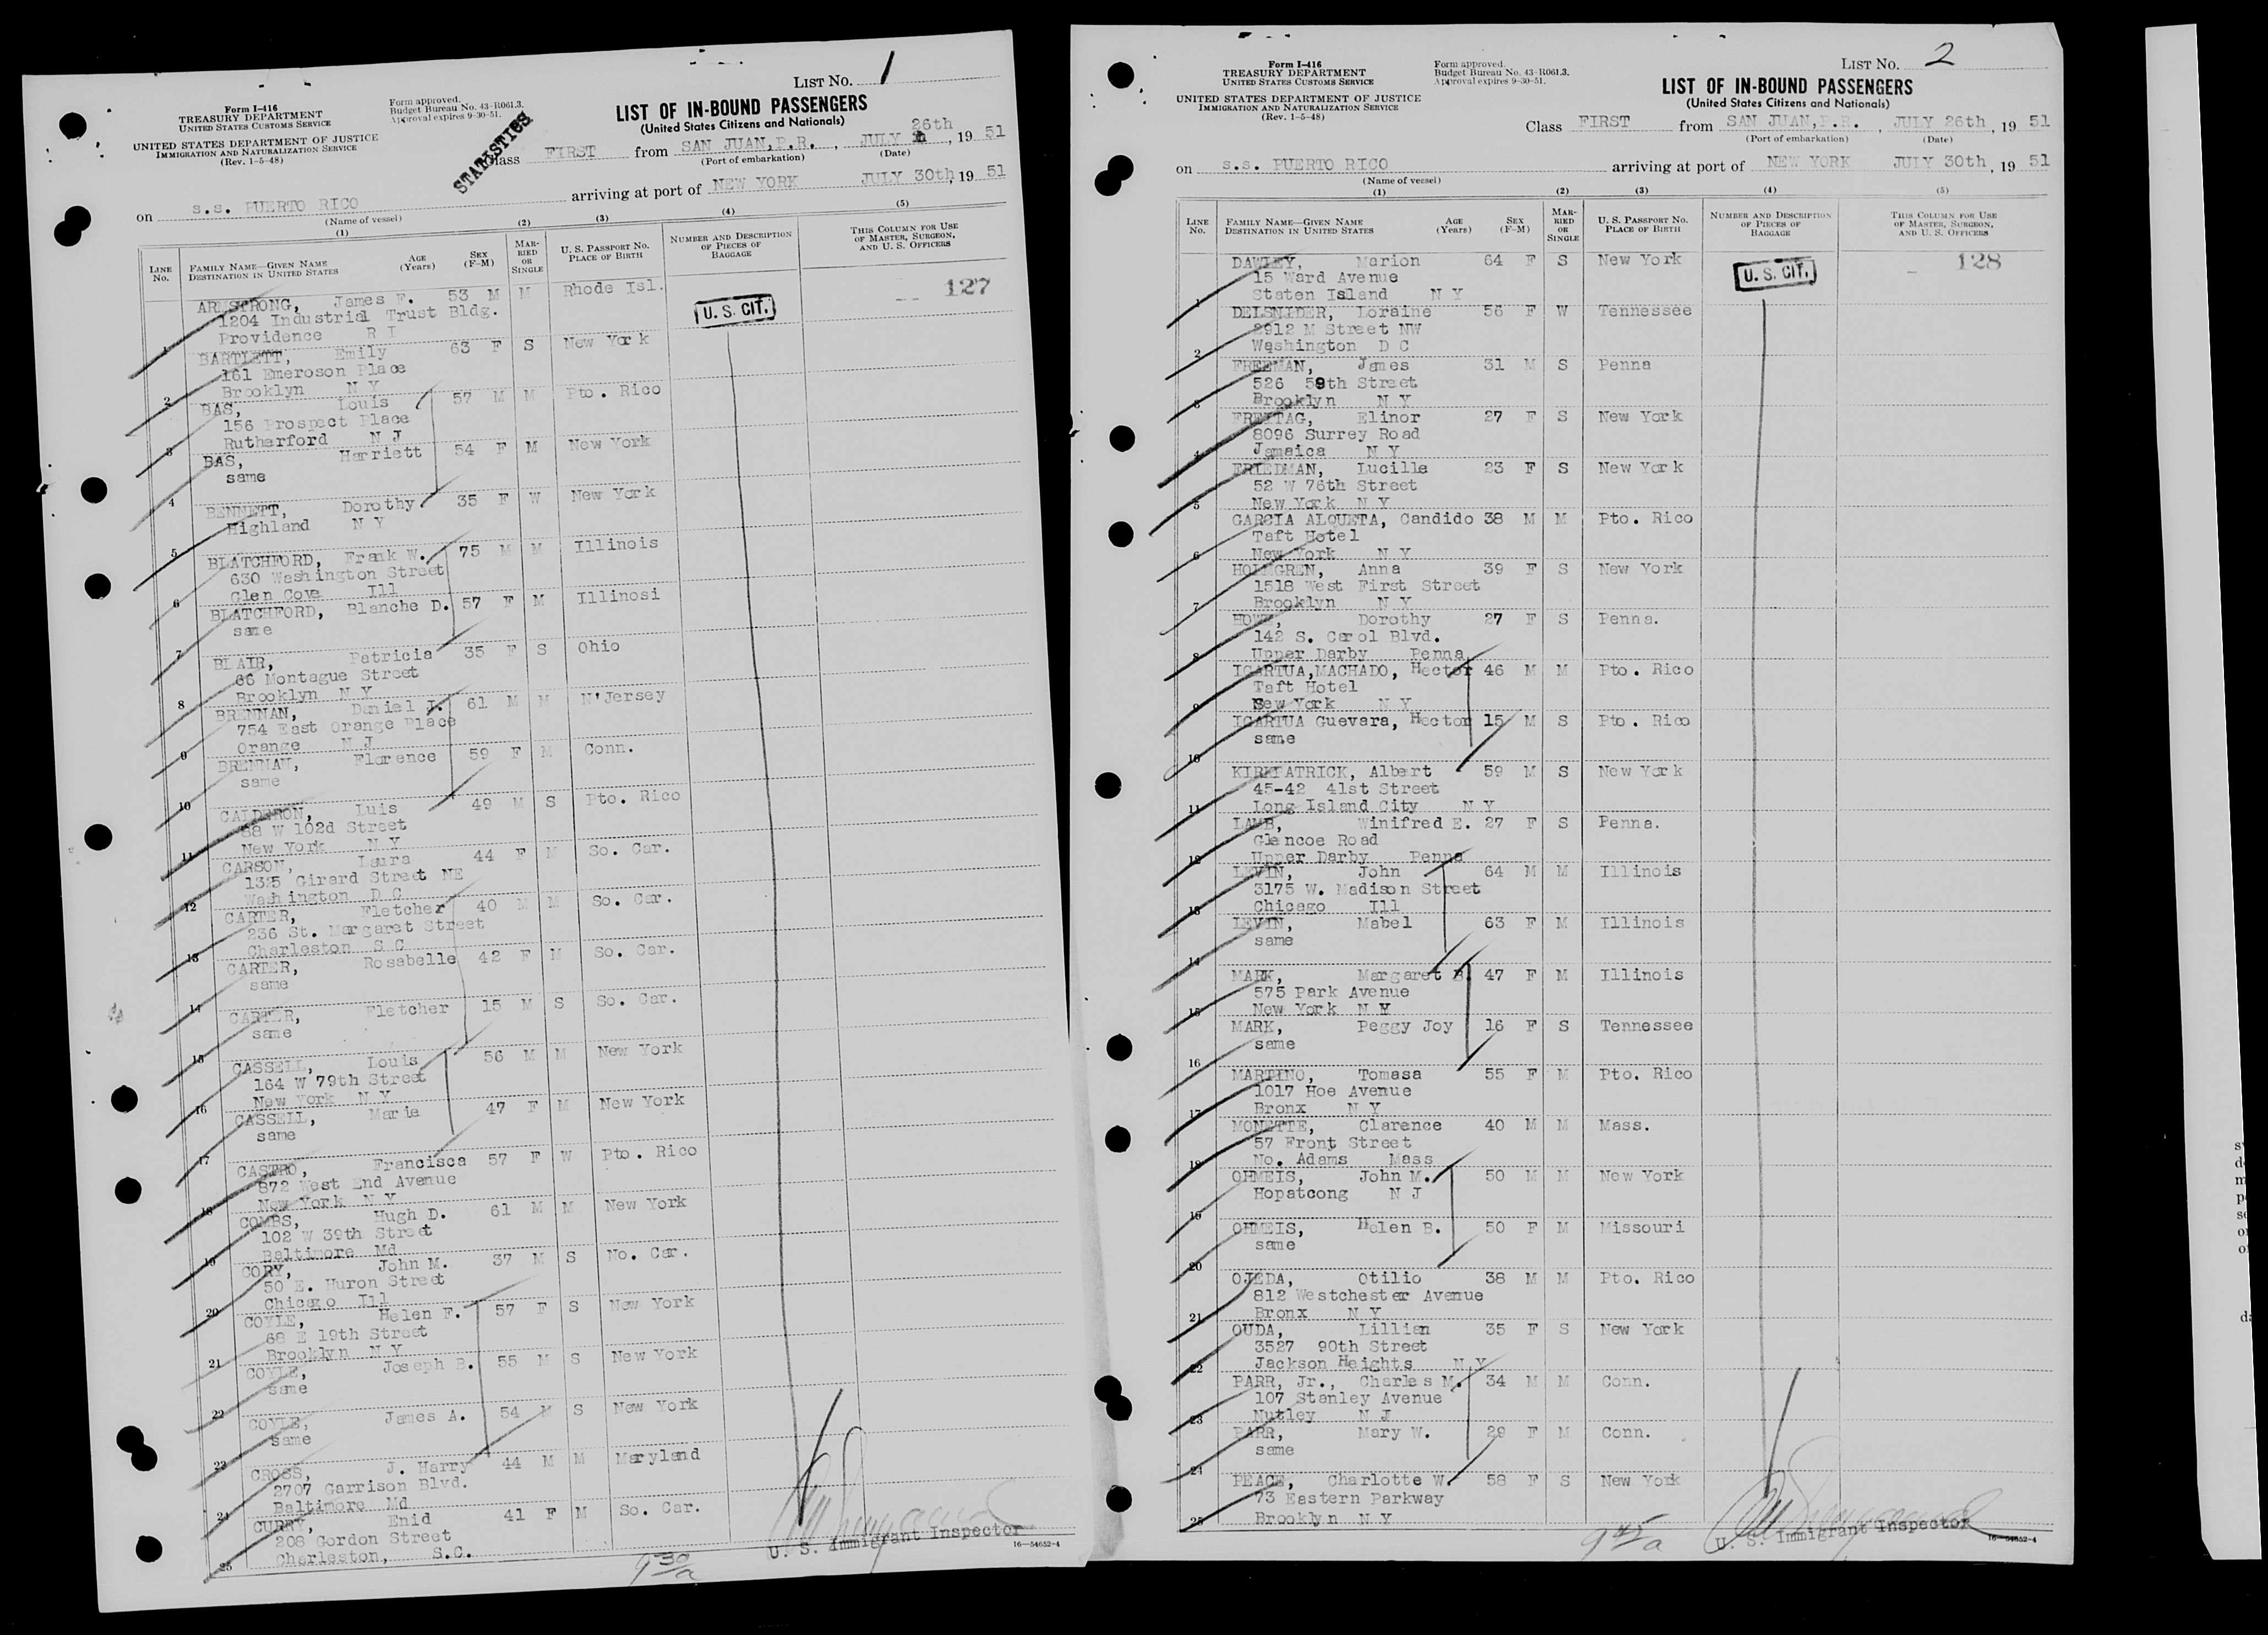 LIST NO. 1
Form I-416
TREASURY DEPARTMENT
UNITED STATES CUSTOMS SERVICE
UNITED STATES DEPARTMENT OF JUSTICE
IMMIGRATION AND NATURALIZATION SERVICE
(Rev. 1-5-48)
Form approved.
Budget Bureau No. 43-R061.3.
Approval expires 9-30-51.
STATISTICS
LIST OF IN-BOUND PASSENGERS
(United States Citizens and Nationals)
Class FIRST from SAN JUAN, P.R., JULY 26th, 19 51
(Port of embarkation) (Date)
on s.s. PUERTO RICO arriving at port of NEW YORK JULY 30th, 19 51
(Name of vessel)
(1) (2) (3) (4) (5)
LINE NO. FAMILY NAME—GIVEN NAME DESTINATION IN UNITED STATES AGE (Years) SEX (F-M) MARRIED OR SINGLE U. S. PASSPORT NO. PLACE OF BIRTH NUMBER AND DESCRIPTION OF PIECES OF BAGGAGE THIS COLUMN FOR USE OF MASTER, SURGEON, AND U. S. OFFICERS
ARMSTRONG, James F. 53 M M Rhode Isl. U. S. CIT. 127
1204 Industrial Trust Bldg.
1 Providence R I
BARTLETT, Emily 63 F S New York
161 Emeroson Place
2 Brooklyn N Y
BAS, Louis 57 M M Pto. Rico
156 Prospect Place
3 Rutherford N J
BAS, Harriett 54 F M New York
same
4
BENNETT, Dorothy 35 F W New York
Highland N Y
5
BLATCHFORD, Frank W. 75 M M Illinois
630 Washington Street
6 Glen Cove Ill
BLATCHFORD, Blanche D. 57 F M Illinosi
same
7
BLAIR, Patricia 35 F S Ohio
66 Montague Street
8 Brooklyn N Y
BRENNAN, Daniel J. 61 M M N'Jersey
754 East Orange Place
9 Orange N J
BRENNAN, Florence 59 F M Conn.
same
10
CALDERON, Luis 49 M S Pto. Rico
88 W 102d Street
11 New York N Y
CARSON, Laura 44 F M So. Car.
1325 Girard Street NE
12 Washington D C
CARTER, Fletcher 40 M M So. Car.
236 St. Margaret Street
13 Charleston S C
CARTER, Rosabelle 42 F M So. Car.
same
14
CARTER, Fletcher 15 M S So. Car.
same
15
CASSELL, Louis 56 M M New York
164 W 79th Street
16 New York N Y
CASSELL, Marie 47 F M New York
same
17
CASTRO, Francisca 57 F W Pto. Rico
872 West End Avenue
18 New York N Y
COMBS, Hugh D. 61 M M New York
102 W 39th Street
19 Baltimore Md
CORY, John M. 37 M S No. Car.
50 E. Huron Street
20 Chicago Ill
COYLE, Helen F. 57 F S New York
68 E 19th Street
21 Brooklyn N Y
COYLE, Joseph B. 55 M S New York
same
22
COYLE, James A. 54 M S New York
same
23
CROSS, J. Harry 44 M M Maryland
2707 Garrison Blvd.
24 Baltimore Md
CURRY, Enid 41 F M So. Car.
208 Gordon Street
25 Charleston, S.C.
9 30/a
U. S. Immigrant Inspector
16—54652-4
LIST NO. 2
Form I-416
TREASURY DEPARTMENT
UNITED STATES CUSTOMS SERVICE
UNITED STATES DEPARTMENT OF JUSTICE
IMMIGRATION AND NATURALIZATION SERVICE
(Rev. 1-5-48)
Form approved.
Budget Bureau No. 43-R061.3.
Approval expires 9-30-51.
LIST OF IN-BOUND PASSENGERS
(United States Citizens and Nationals)
Class FIRST from SAN JUAN, P.R., JULY 26th, 19 51
(Port of embarkation) (Date)
on s.s. PUERTO RICO arriving at port of NEW YORK JULY 30th, 19 51
(Name of vessel)
(1) (2) (3) (4) (5)
LINE NO. FAMILY NAME—GIVEN NAME DESTINATION IN UNITED STATES AGE (Years) SEX (F-M) MARRIED OR SINGLE U. S. PASSPORT NO. PLACE OF BIRTH NUMBER AND DESCRIPTION OF PIECES OF BAGGAGE THIS COLUMN FOR USE OF MASTER, SURGEON, AND U. S. OFFICERS
DAWLEY, Marion 64 F S New York U. S. CIT. 128
15 Ward Avenue
1 Staten Island N Y
DELSNIDER, Loraine 56 F W Tennessee
2912 M Street NW
2 Washington D C
FREEMAN, James 31 M S Penna
526 59th Street
3 Brooklyn N Y
FREITAG, Elinor 27 F S New York
8096 Surrey Road
4 Jamaica N Y
FRIEDMAN, Lucille 23 F S New York
52 W 76th Street
5 New York N Y
GARCIA ALQUETA, Candido 38 M M Pto. Rico
Taft Hotel
6 New York N Y
HOLMGREN, Anna 39 F S New York
1518 West First Street
7 Brooklyn N Y
HOWE, Dorothy 27 F S Penna.
142 S. Carol Blvd.
8 Upper Darby Penna
IGARTUA,MACHADO, Hector 46 M M Pto. Rico
Taft Hotel
9 New York N Y
IGARTUA Guevara, Hector 15 M S Pto. Rico
same
10
KIRKPATRICK, Albert 59 M S New York
45-42 41st Street
11 Long Island City N Y
LAMB, Winifred E. 27 F S Penna.
Glencoe Road
12 Upper Darby Penna
LEVIN, John 64 M M Illinois
3175 W. Madison Street
13 Chicago Ill
LEVIN, Mabel 63 F M Illinois
same
14
MARK, Margaret B. 47 F M Illinois
575 Park Avenue
15 New York N Y
MARK, Peggy Joy 16 F S Tennessee
same
16
MARTINO, Tomasa 55 F M Pto. Rico
1017 Hoe Avenue
17 Bronx N Y
MONETTE, Clarence 40 M M Mass.
57 Front Street
18 No. Adams Mass
OHMEIS, John M. 50 M M New York
Hopatcong N J
19
OHMEIS, Helen B. 50 F M Missouri
same
20
OJEDA, Otilio 38 M M Pto. Rico
812 Westchester Avenue
21 Bronx N Y
OUDA, Lillian 35 F S New York
3527 90th Street
22 Jackson Heights N Y
PARR, Jr., Charles M. 34 M M Conn.
107 Stanley Avenue
23 Nutley N J
PARR, Mary W. 29 F M Conn.
same
24
PEACE, Charlotte W. 58 F S New York
73 Eastern Parkway
25 Brooklyn N Y
9 45/a
U. S. Immigrant Inspector
16—54652-4